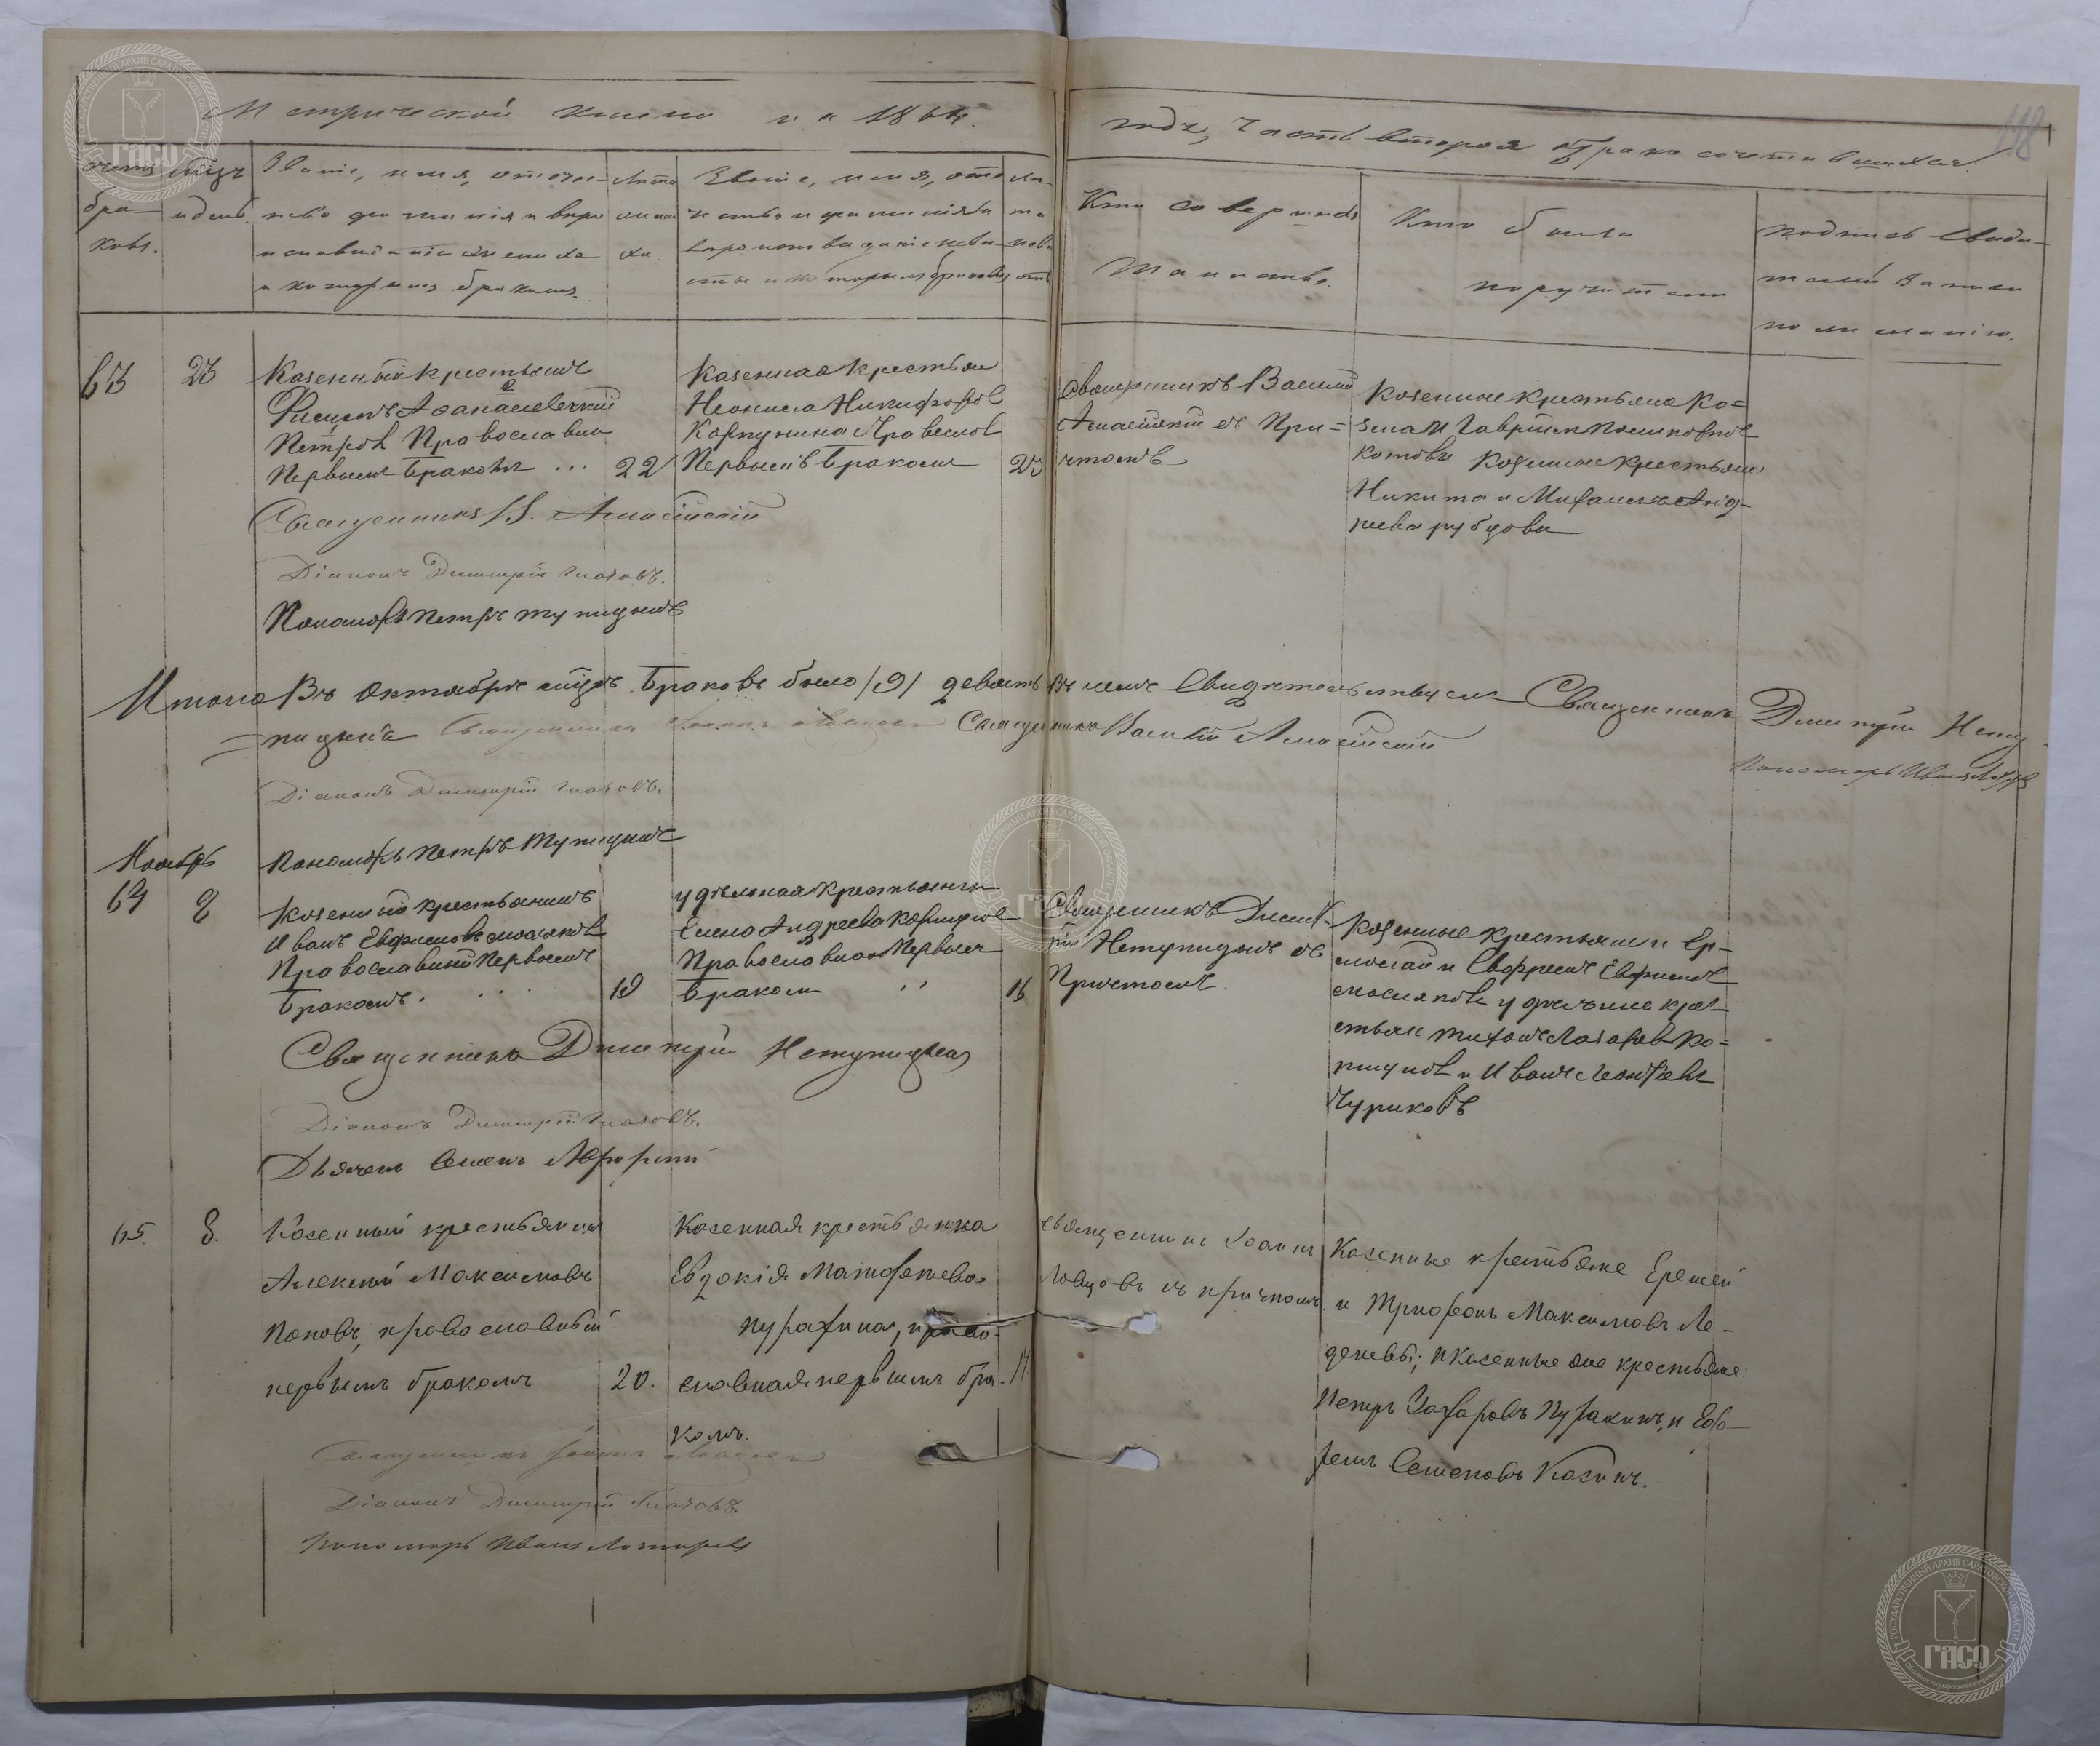 Метрической книги на 1864.
годъ, часть вторая о бракосочетавшихся.
118
счетъ браковъ.
мѣсяцъ и день.
Званіе, имя, отече-
ство фамилія и вѣро
исповѣданіе жениха
и которымъ бракомъ.
Лѣта жениха.
Званіе, имя, отче
ство и фамилія и
вѣроисповѣданіе невѣ-
сты и которымъ бракомъ
Лѣта невѣсты
Кто совершалъ
таинство.
Кто были
поручители
подпись свидѣ-
телей записи
по желанію.
63
23
Казенный крестьянинъ
Филипъ Афанасіевъ
Петровъ Православна
Первымъ бракомъ ... 22
Казенная крестьян
Неонила Никифоров
Корпунина Православ
Первымъ бракомъ 23
Священникъ Василій
Амасійскій съ При=
чтомъ
Казенные крестьяне Ко=
зма и Гаврiилъ
Котовы Казенные крестьяне
Никита и Михаилъ Анд-
реевы рубцовы
Священникъ В. Амасійскій
Діаконъ Димитрій Глаголевъ.
Пономарь Петръ Тупицынъ
Итого Въ Октябрѣ мѣсяцѣ Браковъ было /9/ девять Въ чемъ Свидѣтельствуемъ Священникъ Дмитрій Нету-
пицкій Священникъ Іоаннъ Ловцовъ Священникъ Василій Амасійскій
Пономарь Иванъ
Діаконъ Димитрій
Пономарь Петръ Тупицынъ
Ноябрь
64
8
Казенный крестьянинъ
Иванъ Евфимовъ
Православный Первымъ
Бракомъ. 19
удѣльная крестьянка
Елена Андреева
Православная Первым
Браком 16
Священникъ Димит-
рій Нетупицкій съ
Причтомъ.
Казенные крестьяне Ер-
молай и Ефремъ Евфимов
удѣльные кре-
стьяне Тихонъ Ко-
и Иванъ Леонтьевъ
Чуриковъ
Священникъ Дмитрій Нетупицкій
Діаконъ Димитрій
Дьячекъ Семенъ
65.
8.
Казенный крестьянинъ
Алексѣй Максимовъ
Поповъ, православный
первымъ бракомъ 20.
Казенная крестьянка
Евдокія Матфеева
Пурахина, право-
славная первымъ бра-
комъ.
17
священникъ Іоаннъ
Ловцовъ съ причтомъ.
Казенные крестьяне Еремей
и Трифонъ Максимовъ Ле-
деневы; и казенные же крестьяне:
Петръ Захаровъ Пурахинъ, и Еф-
ремъ Семеновъ Косинъ.
Священникъ Іоаннъ Ловцовъ
Діаконъ Димитрій
Пономарь Иванъ
ГОСУДАРСТВЕННЫЙ АРХИВ САРАТОВСКОЙ ОБЛАСТИ
ГАСО